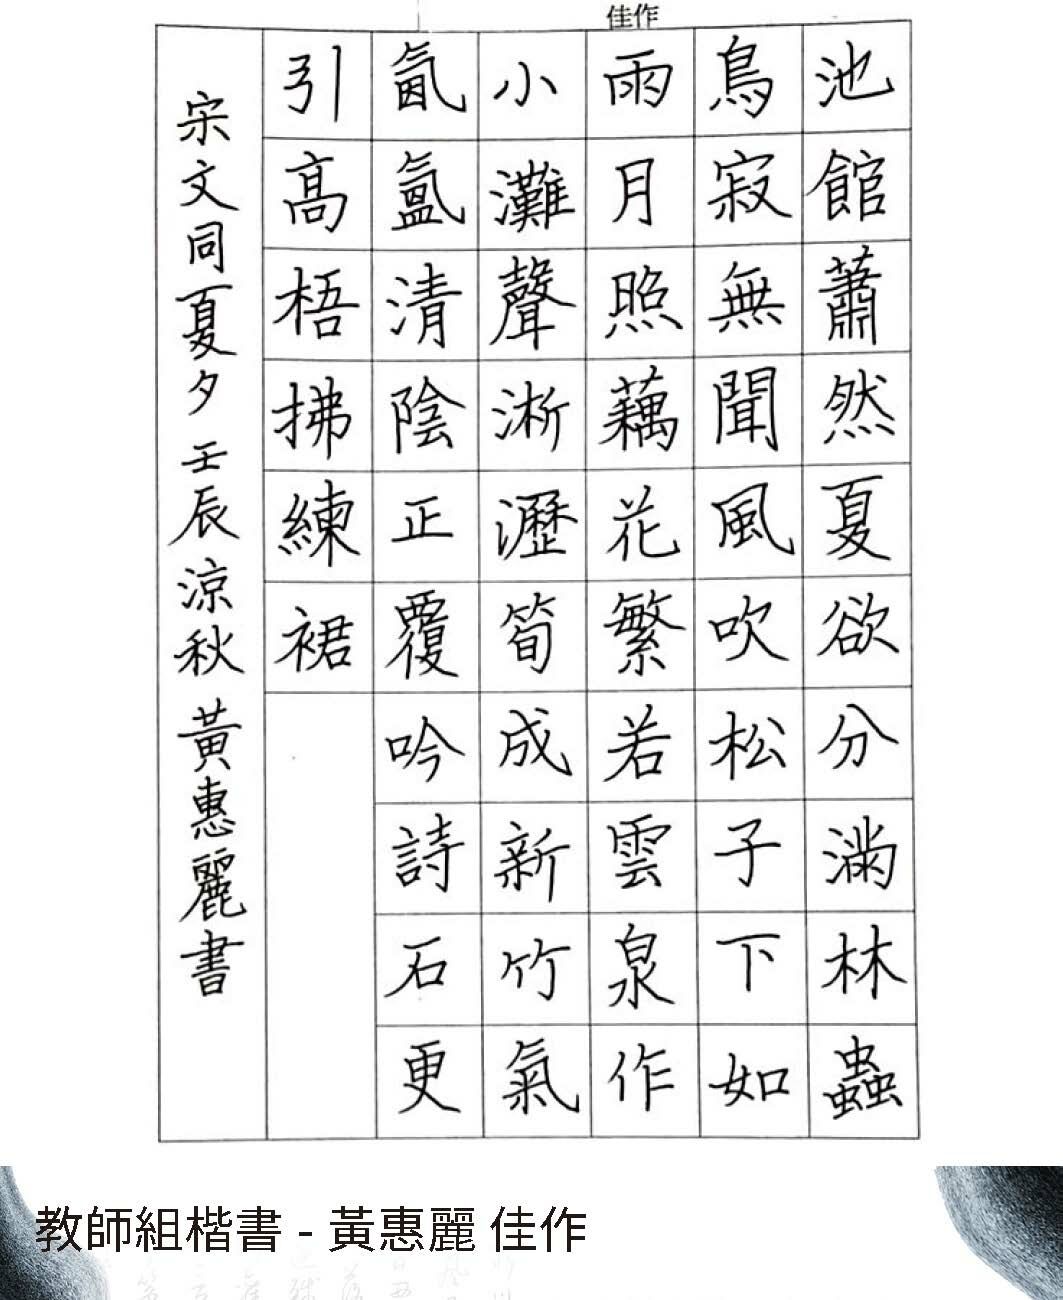 佳作
池館蕭然夏欲分滿林蟲
鳥寂無聞風吹松子下如
雨月照藕花繁若雲泉作
小灘聲淅瀝筍成新竹氣
氤氳清陰正覆吟詩石更
引高梧拂練裙
宋文同夏夕壬辰涼秋黃惠麗書
教師組楷書 - 黃惠麗 佳作